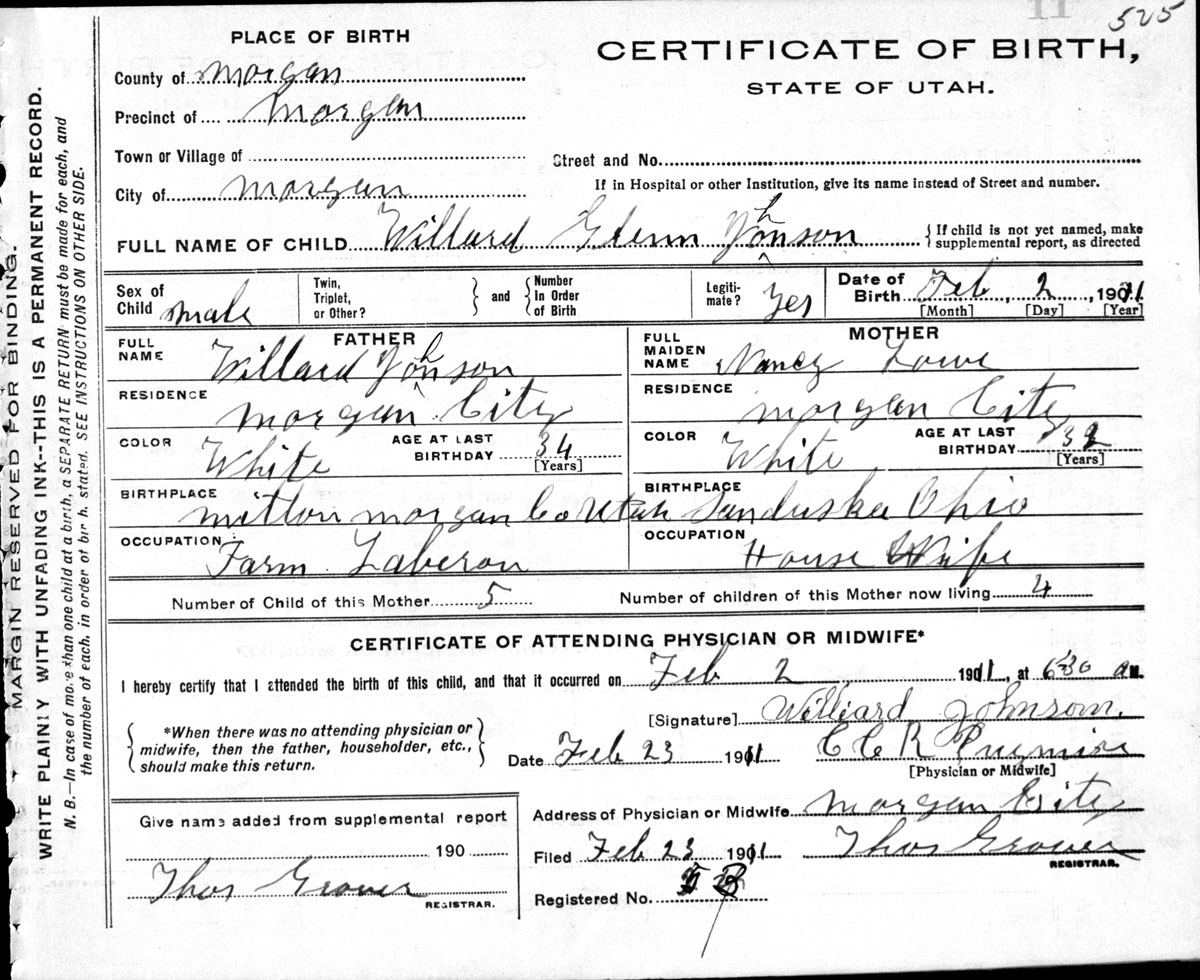 11 525
PLACE OF BIRTH
CERTIFICATE OF BIRTH,
STATE OF UTAH.
County of Morgan
Precinct of Morgan
Town or Village of
Street and No.
City of Morgan
If in Hospital or other Institution, give its name instead of Street and number.
FULL NAME OF CHILD Willard Glenn Johnson { If child is not yet named, make supplemental report, as directed
Sex of Child male Twin, Triplet, or Other? } and { Number In Order of Birth Legiti-mate? Yes Date of Birth Feb, 2, 1911
[Month] [Day] [Year]
FATHER
FULL NAME Willard Johnson
RESIDENCE Morgan City
COLOR White AGE AT LAST BIRTHDAY 34 [Years]
BIRTHPLACE Milton Morgan Co Utah
OCCUPATION Farm Laberon
MOTHER
FULL MAIDEN NAME Nancy Lowe
RESIDENCE Morgan City
COLOR White AGE AT LAST BIRTHDAY 32 [Years]
BIRTHPLACE Sanduska Ohio
OCCUPATION House Wife
Number of Child of this Mother 5 Number of children of this Mother now living 4
CERTIFICATE OF ATTENDING PHYSICIAN OR MIDWIFE*
I hereby certify that I attended the birth of this child, and that it occurred on Feb 2 1911, at 6:30 am.
*When there was no attending physician or
midwife, then the father, householder, etc.,
should make this return.
[Signature] Williard Johnsom.
Date Feb 23 1911 C C R
[Physician or Midwife]
Address of Physician or Midwife Morgan City
Filed Feb 23 1911 Thos Grover
REGISTRAR.
Registered No.
Give name added from supplemental report
190
Thos Grover
REGISTRAR.
MARGIN RESERVED FOR BINDING.
WRITE PLAINLY WITH UNFADING INK--THIS IS A PERMANENT RECORD.
N. B.—In case of more than one child at a birth, a SEPARATE RETURN must be made for each, and
the number of each, in order of birth, stated. SEE INSTRUCTIONS ON OTHER SIDE.